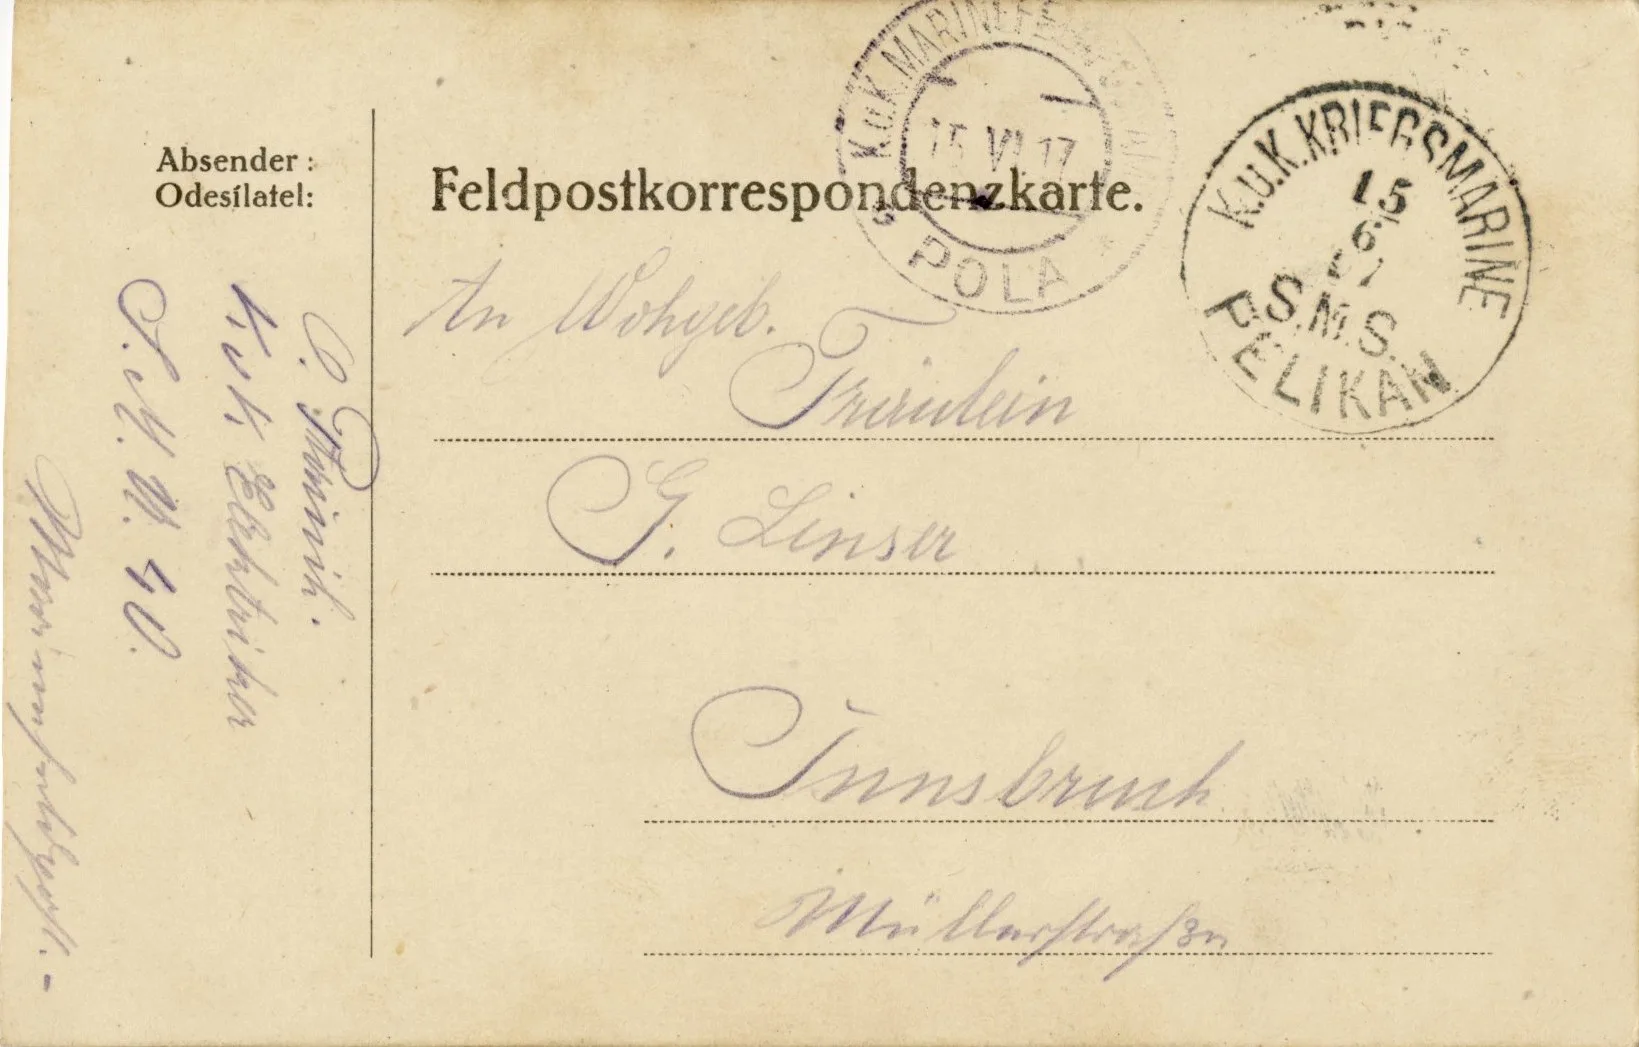 Absender:
Odesílatel:
Feldpostkorrespondenzkarte.
K.u.K. MARINEFELDPOSTAMT
15 VI 17
POLA
K.u.K. KRIEGSMARINE
15
6
17
S.M.S.
PELIKAN
An Wohlgeb.
Fräulein
G. Linser
Innsbruck
Müllerstraße
k.u.k. Elektriker
S.M.U. 40.
Marinefeldpost.-